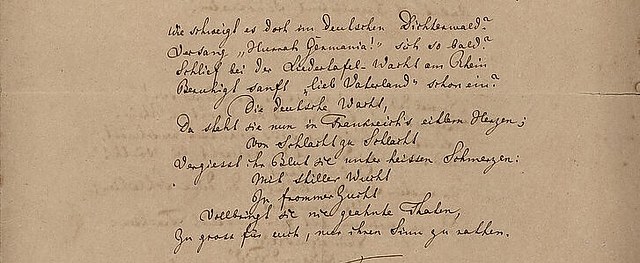 Wie schweigt es doch im Deutschen Dichterwald?
Versang „Hurrah Germania!" sich so bald?
Schlief bei der Liedertafel-Wacht am Rhein
Beruhigt sanft „lieb Vaterland" schon ein?
Die deutsche Wacht,
Da steht sie nun in Frankreich's eitlem Herzen;
Von Schlacht zu Schlacht
Vergiesst ihr Blut sie unter heissen Schmerzen:
Mit stiller Wucht
In frommer Zucht
Vollbringt sie nie geahnte Thaten,
Zu gross für euch, nur ihren Sinn zu rathen.